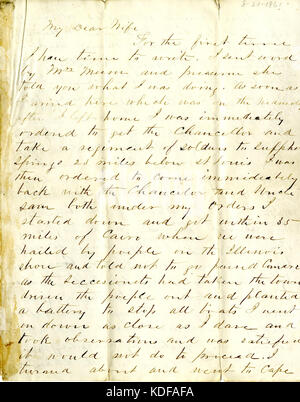 8-21-1861
My Dear Wife
For the first time
I have time to write. I sent word
by Mrs Mason and presume she
told you what I was doing. As soon as
I arived here which was on the
after I left home I was immediately
ordered to get the Chancellor and
take a regiment of soldiers to Sulpher
Springs 23 miles below St Louis I was
then ordered to come immediately
back with the Chancelor, and Uncle
Sam both under my orders I
started down and got within 35
miles of Cairo when we were
hailed by people on the Illinois
shore and told not to go
as the seccesionests had taken the town
driven the people out and planted
a battery to stop all boats I went
on down as close as I dare and
took observations and was satisfied
it would not do to procead. I
turned about and went to Cape
alamy
Image ID: KDFAFA
www.alamy.com